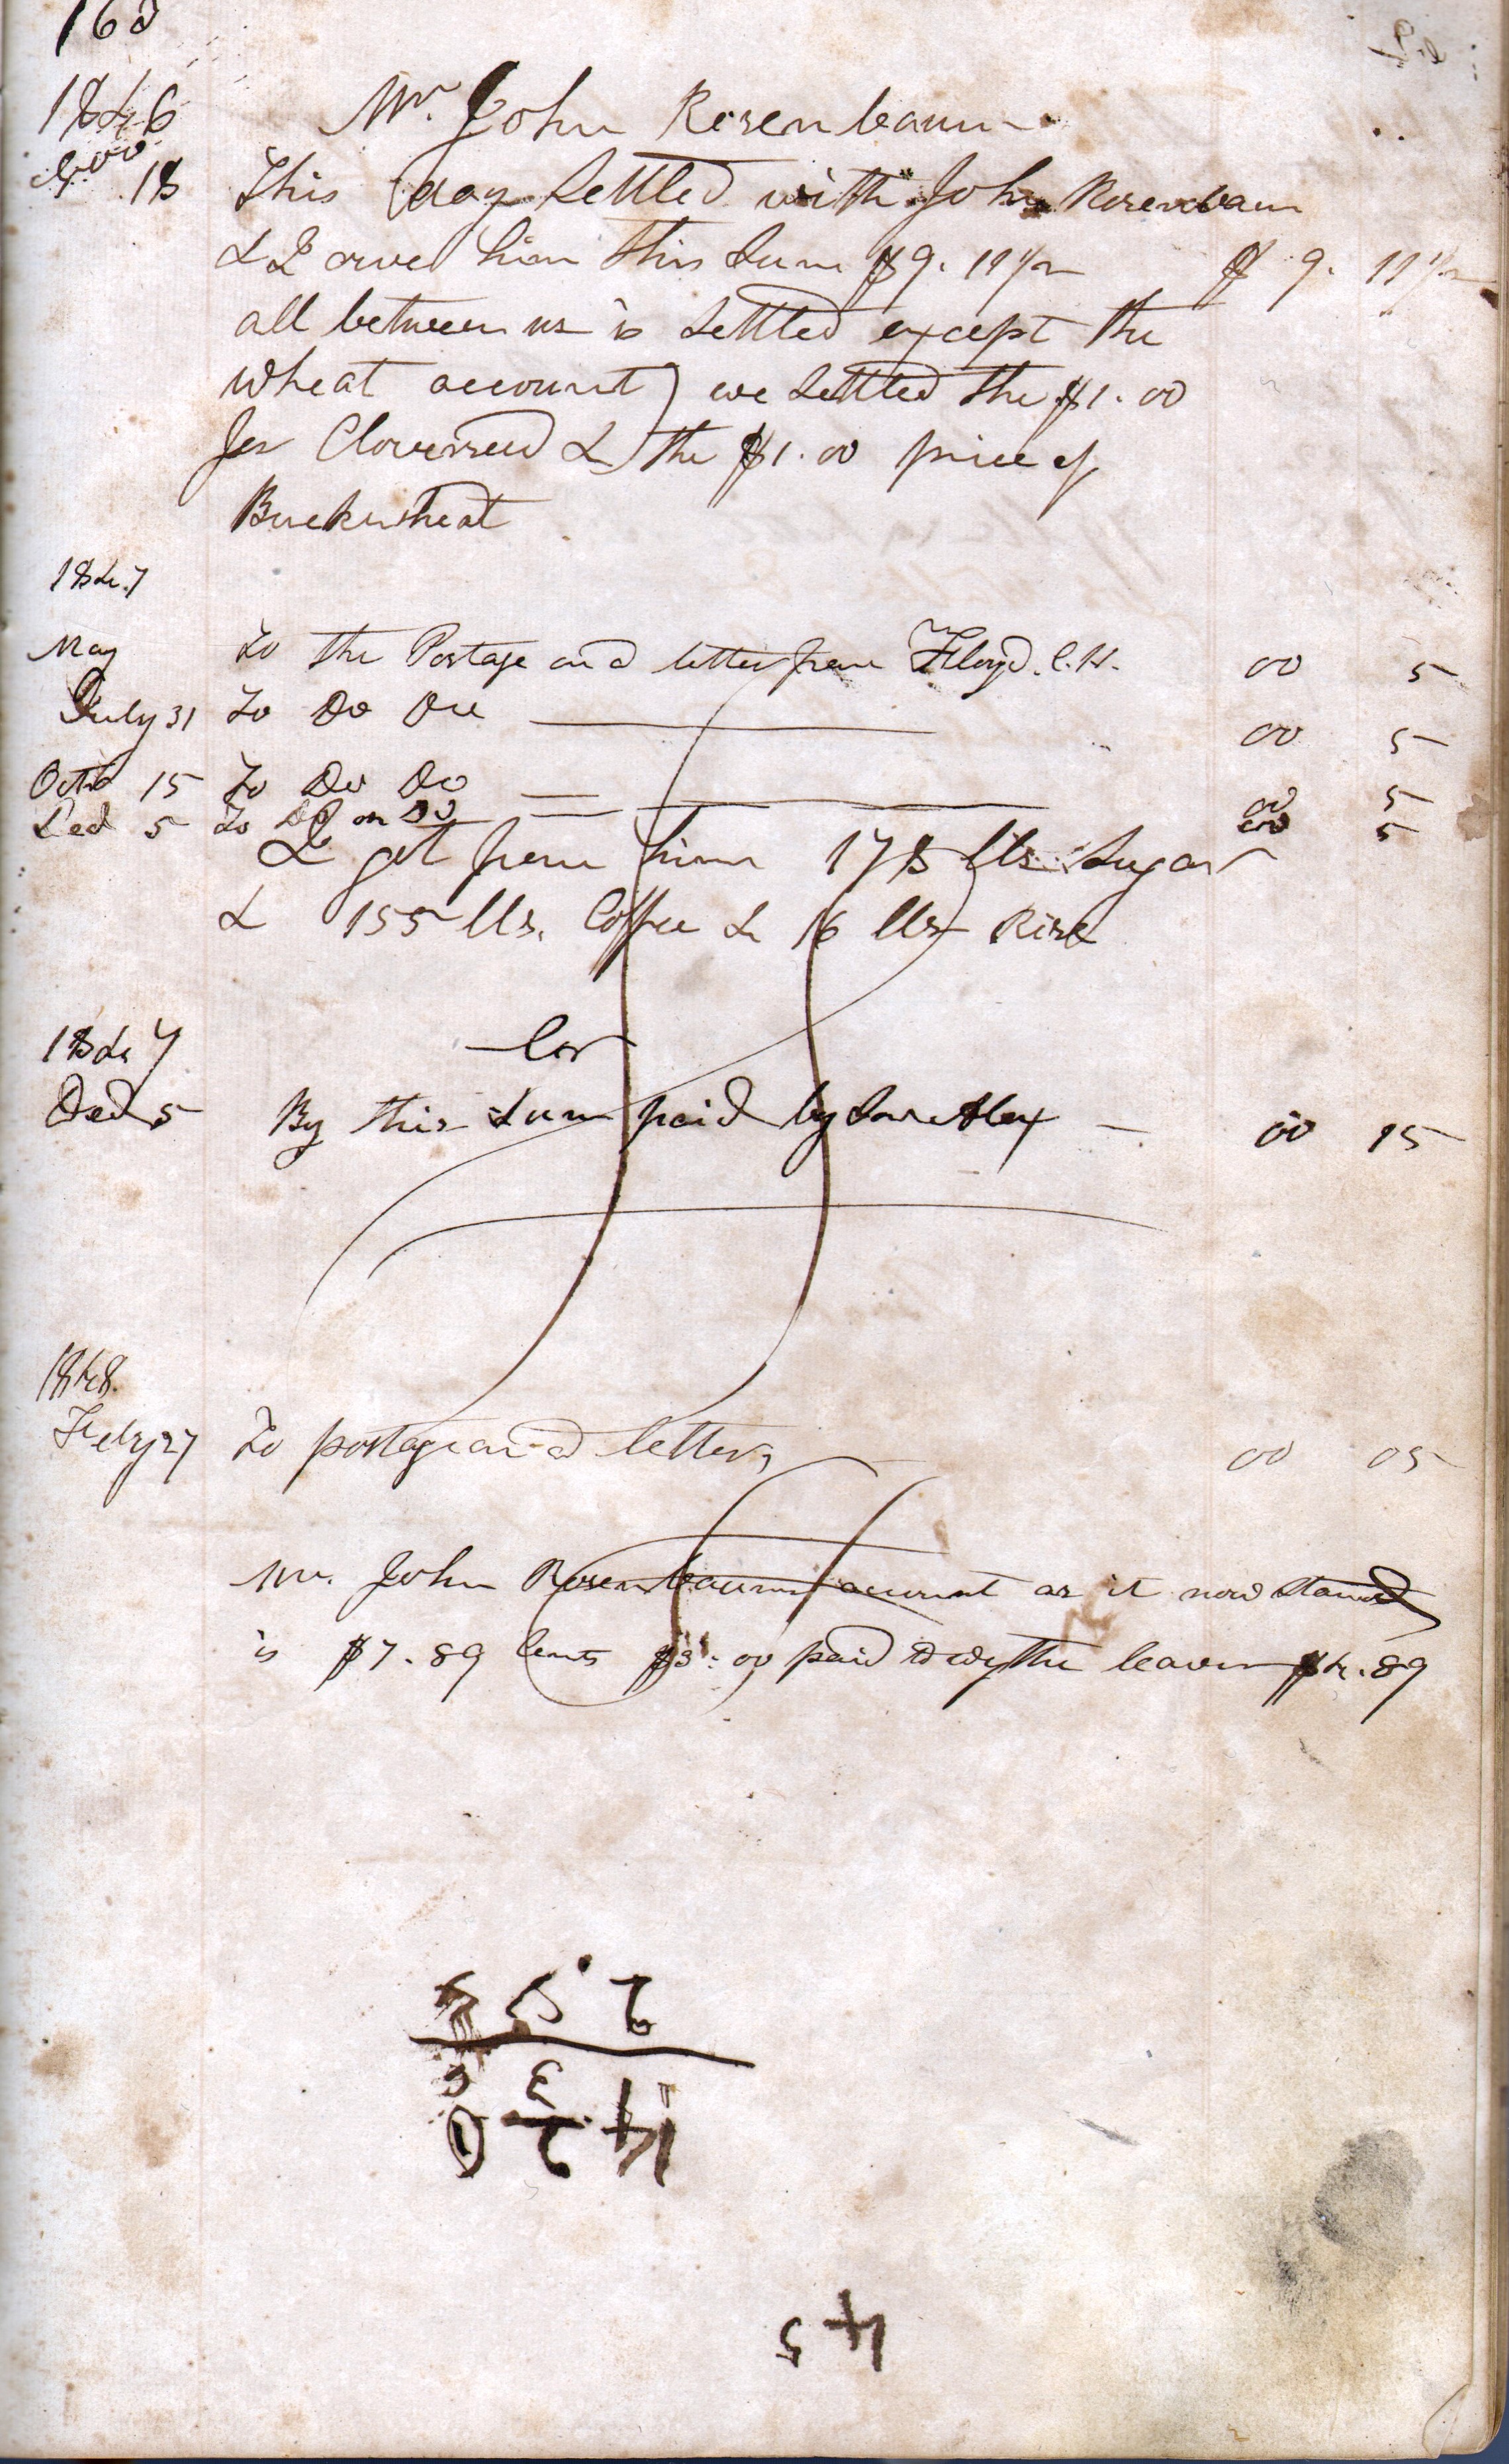 168
1846 Mr. John Rosenbaum
Nov. 18 This day Settled with John Rosenbaum
& I owe him this Sum $9. 11 1/2 $ 9. 11 1/2
all between us is Settled except the
wheat account) we Settled the $1.00
for Cloverseed & the $1.00 price of
Buckwheat
1847
May To the Postage on a letter from Floyd. C.H. 00 5
July 31 To Do Do 00 5
Octo 15 To Do Do 00 5
Dec 5 To Do on Do 00 5
I got from him 178 lbs Sugar
& 155 lbs. Coffee & 16 lbs Rise
1847 Cr
Dec 5 By this Sum paid by Son Alex — 00 15
1848
Feby 27 To postage on a letter 00 05
Mr. John Rosenbaums account as it now Stands
is $7.89 Cents $3.00 paid leaves $4.89
45